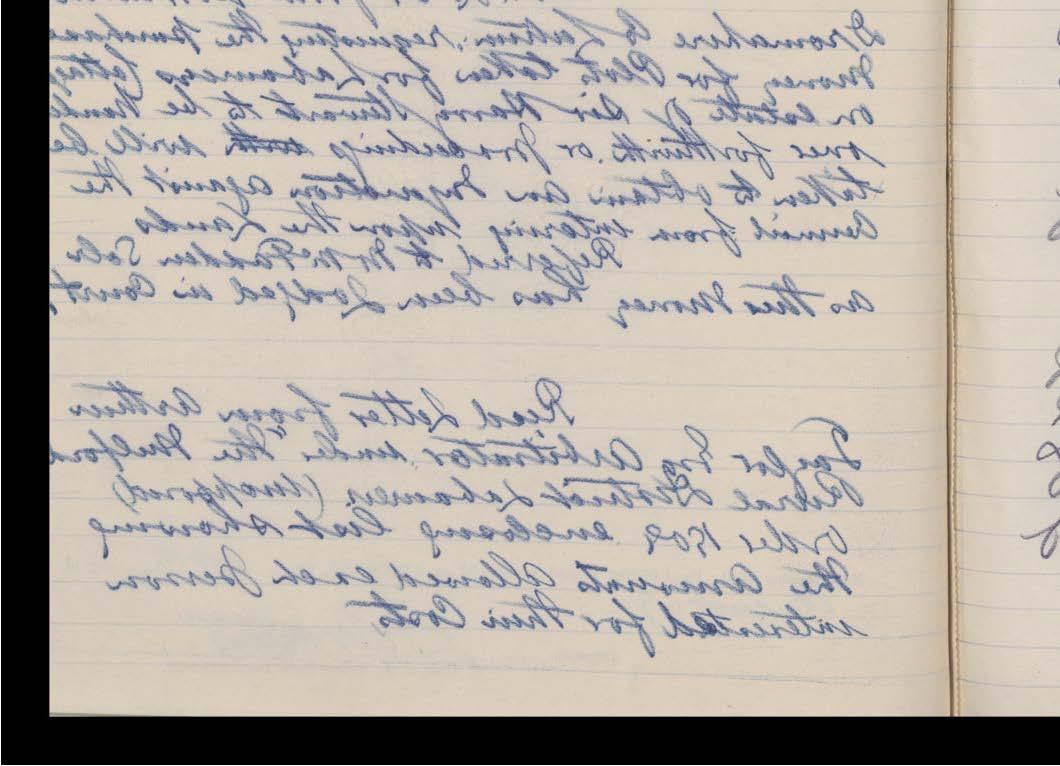 requesting the purchase
money for Plots taken for Labourers
on Estate of Sir Harry Stewart to be
over forthwith or proceedings will be
taken to obtain an Injunction against the
Council from entering upon the Lands
Referred to Mr McFadden Solr
as this money has been Lodged in Court
Read Letter from Arthur
Taylor Esq Arbitrator under "The Milford
Rural District Labourers (Unopposed)
order enclosing list showing
the amounts allowed each person
interested for their Costs